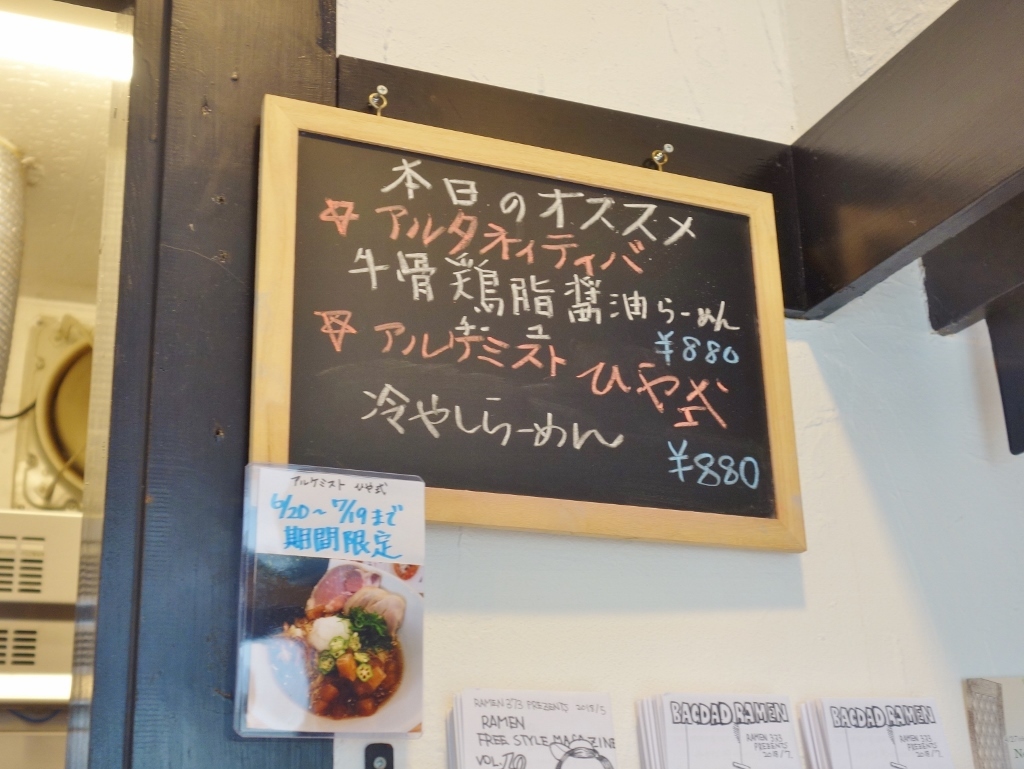 本日のオススメ
アルタネイティバ
牛骨鶏脂醤油らーめん
チーユ
¥880
アルケミスト ひや式
冷やしらーめん
¥880
アルケミスト ひや式
6/20～7/19まで
期間限定
RAMEN 373 PRESENTS 2018/5
RAMEN
FREE STYLE MAGAZINE
VOL.
BAGDAD RAMEN
RAMEN 373
PRESENTS
2018/7
BAGDAD RAMEN
RAMEN 373
PRESENTS
2018/7